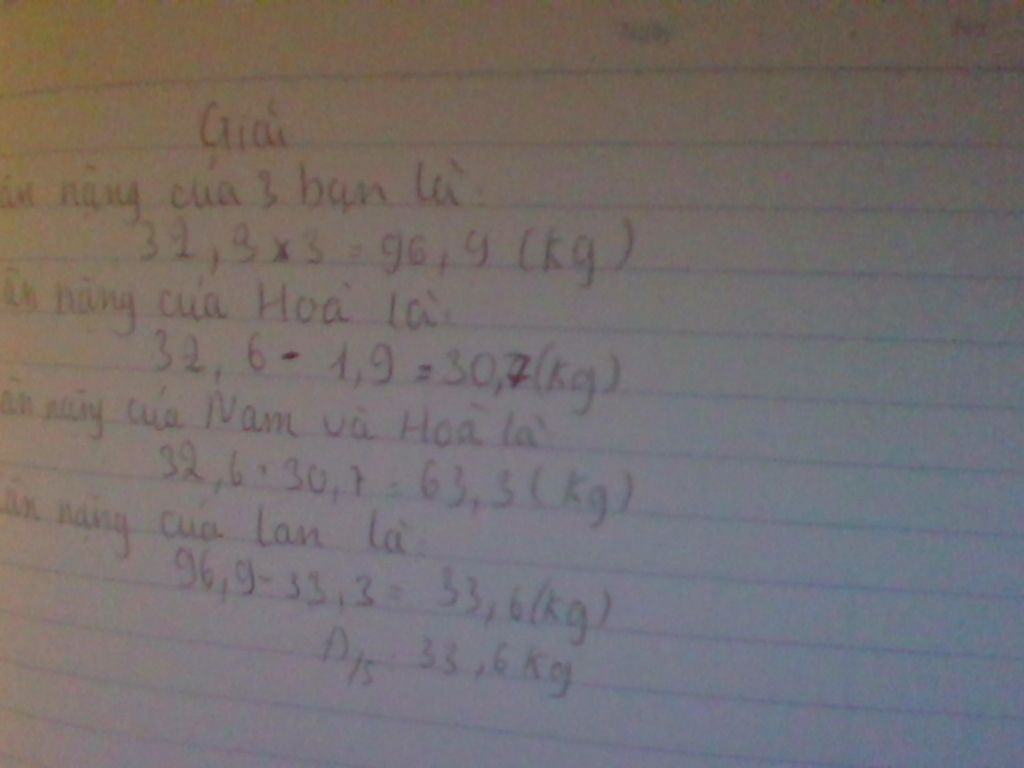 Giải
ân nặng của 3 bạn là:
32,3 x 3 = 96,9 (kg)
ân nặng của Hoà là:
32,6 - 1,9 = 30,7 (kg)
ân nặng của Nam và Hoà là
32,6 + 30,7 = 63,3 (kg)
ân nặng của Lan là:
96,9 - 33,3 = 33,6 (kg)
Đ/s: 33,6 kg